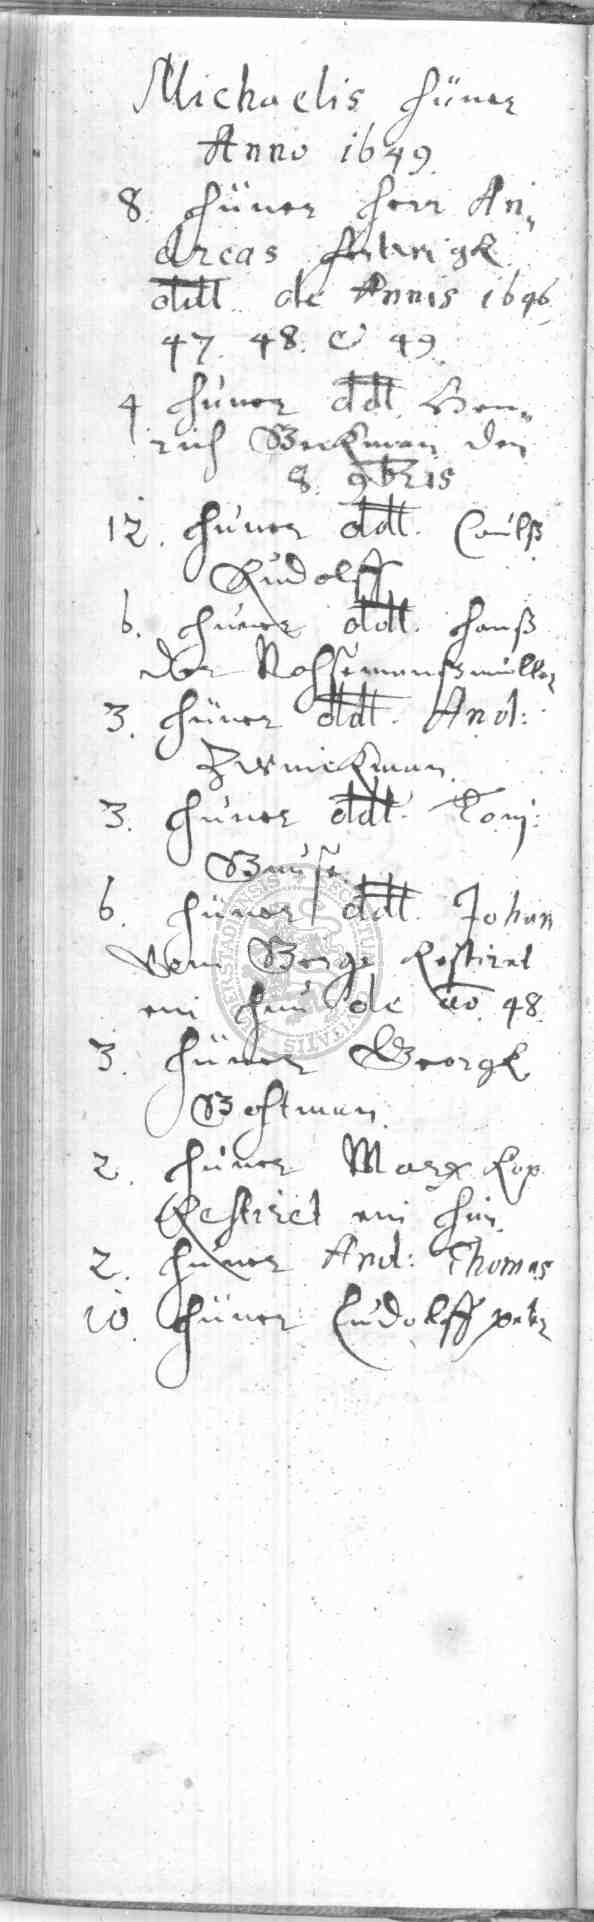 Michaelis Hüner
Anno 1649
8. Hüner Herr An,
dreas
ddt. de Annis 1646
47. 48. & 49
4 Hüner ddt. Hen,,
rich Beckman den
8. 9bris
12. Hüner ddt. Paulß
Rudolff
6. Hüner ddt. Hanß
der müller
3. Hüner ddt. And:
Zwnickman
3. Hüner ddt. Tonj:
Bruse
6. Hüner ddt. Johan
vom Berge Restiret
ein Hun de ao. 48
3. Hüner Georgk
Bestman
2. Hüner Marx Kop
Restiret ein Hun
2. Hüner And: Thomas
10 Hüner Ludolff peter